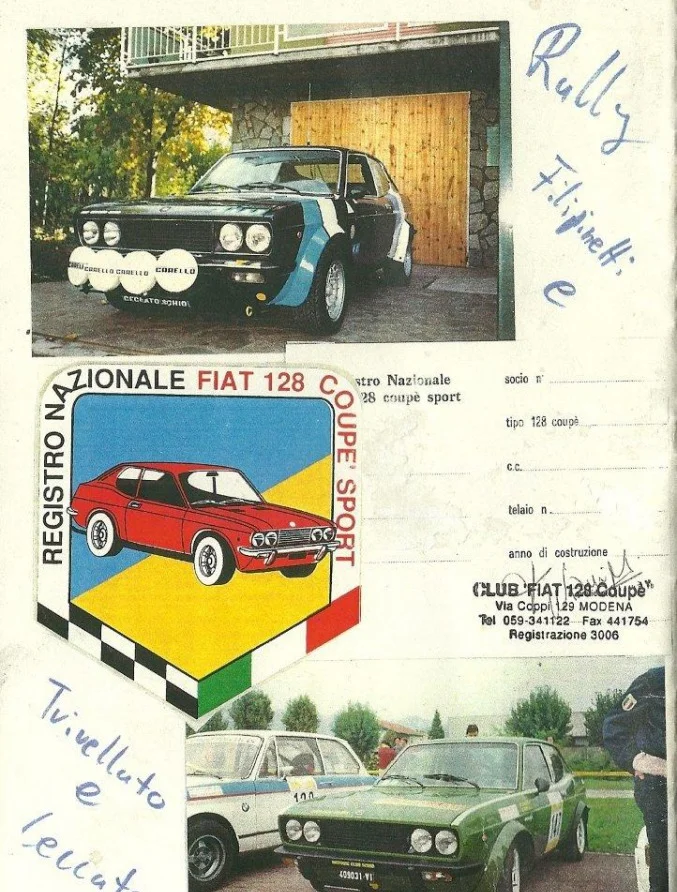 Rally
Filipinetti
e
CARELLO CARELLO CARELLO
CECCATO SCHIO
REGISTRO NAZIONALE FIAT 128 COUPE' SPORT
stro Nazionale
28 coupè sport
socio n°
tipo 128 coupè
c.c.
telaio n.
anno di costruzione
CLUB FIAT 128 Coupe'
Via Coppi 129 MODENA
Tel 059-341122 Fax 441754
Registrazione 3006
Trivellato
e
Ceccato
147
409031 VI